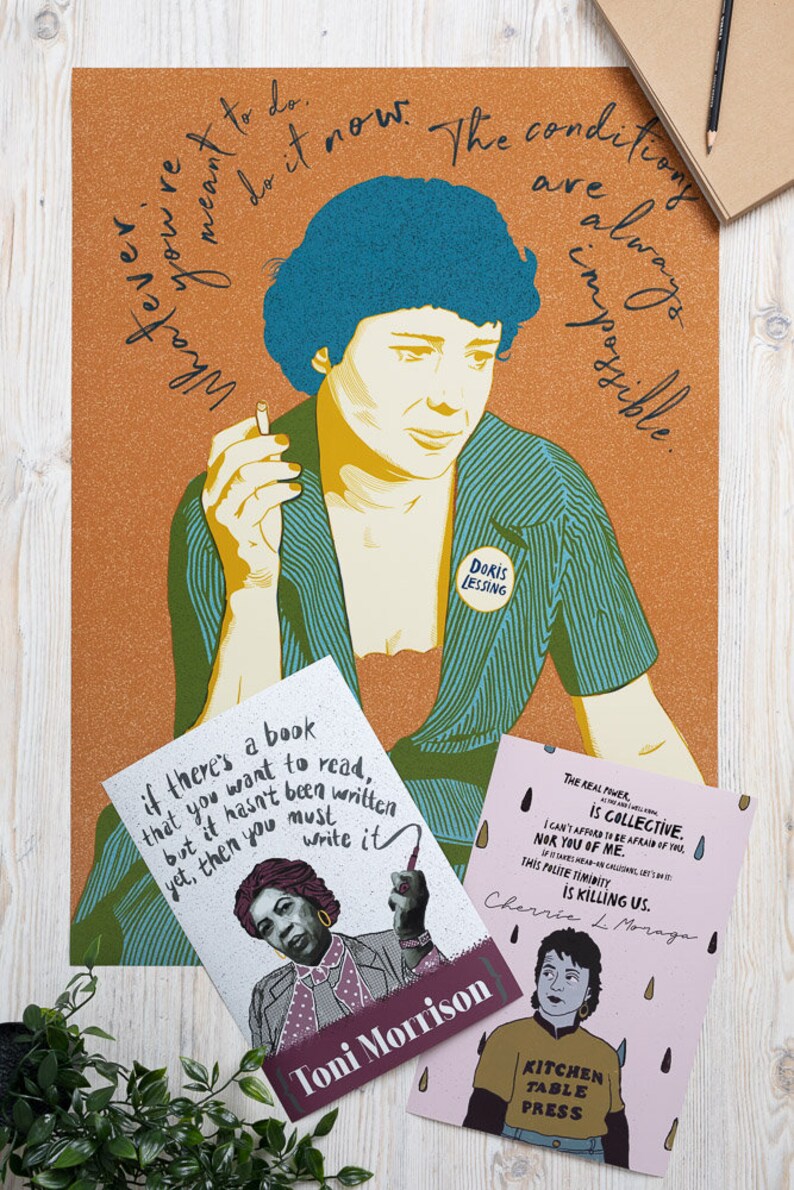 Whatever
you're
meant to do,
do it now.
The conditions
are always
impossible.
DORIS
LESSING
if there's a book
that you want to read,
but it hasn't been written
yet, then you must
write it
{Toni Morrison}
THE REAL POWER,
AS YOU AND I WELL KNOW,
IS COLLECTIVE.
I CAN'T AFFORD TO BE AFRAID OF YOU,
NOR YOU OF ME.
IF IT TAKES HEAD-ON COLLISIONS, LET'S DO IT:
THIS POLITE TIMIDITY
IS KILLING US.
Cherríe L. Moraga
KITCHEN
TABLE
PRESS